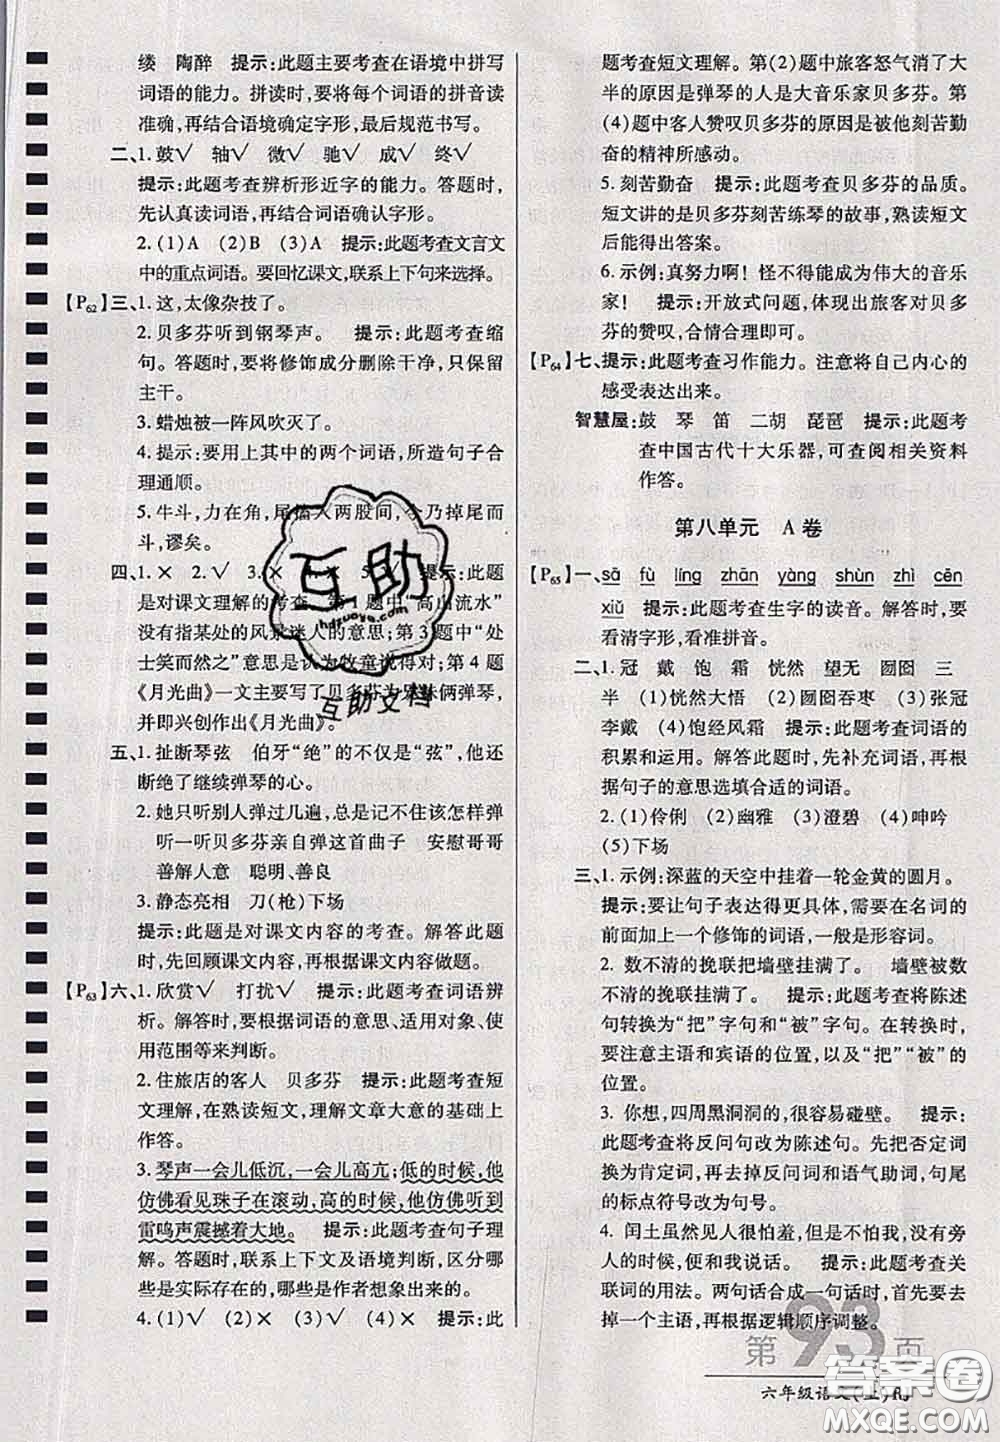 缕　陶醉　提示:此题主要考查在语境中拼写
词语的能力。拼读时,要将每个词语的拼音读
准确,再结合语境确定字形,最后规范书写。
二、1.鼓√　轴√　微√　驰√　成√　终√
提示:此题考查辨析形近字的能力。答题时,
先认真读词语,再结合词语确认字形。
2.(1)A　(2)B　(3)A　提示:此题考查文言文
中的重点词语。要回忆课文,联系上下句来选择。
【P62】三、1.这,太像杂技了。
2.贝多芬听到钢琴声。　提示:此题考查缩
句。答题时,要将修饰成分删除干净,只留
主干。
3.蜡烛被一阵风吹灭了。
4.提示:要用上其中的两个词语,所造句子合
理通顺。
5.牛斗,力在角,尾搐入两股间,今乃掉尾而
斗,谬矣。
四、1.×　2.√　3.×　4.×　5.　提示:此题
是对课文理解的考查。第1题中“高山流水”
没有指某处的风景迷人的意思;第3题中“处
士笑而然之”的意思是认为牧童说得对;第4题
《月光曲》一文主要写了贝多芬为兄妹俩弹琴,
并即兴创作出《月光曲》。
五、1.扯断琴弦　伯牙“绝”的不仅是“弦”,他还
断绝了继续弹琴的心。
2.她只听别人弹过几遍,总是记不住该怎样弹
听一听贝多芬亲自弹这首曲子　安慰哥哥
善解人意　聪明、善良
3.静态亮相　刀(枪)下场
提示:此题是对课文内容的考查。解答此题
时,先回顾课文内容,再根据课文内容做题。
【P63】六、1.欣赏√　打扰√　提示:此题考查词语辨
析。解答时,要根据词语的意思、适用对象、使
用范围等来判断。
2.住旅店的客人　贝多芬　提示:此题考查短
文理解,在熟读短文,理解文章大意的基础上
作答。
3.琴声一会儿低沉,一会儿高亢;低的时候,他
仿佛看见珠子在滚动,高的时候,他仿佛听到
雷鸣声震撼着大地。　提示:此题考查句子理
解。答题时,联系上下文及语境判断,区分哪
些是实际存在的,哪些是作者想象出来的。
4.(1)√　(2)×　(3)×　(4)×　提示:此
题考查短文理解。第(2)题中旅客怒气消了大
半的原因是弹琴的人是大音乐家贝多芬。第
(4)题中客人赞叹贝多芬的原因是被他刻苦勤
奋的精神所感动。
5.刻苦勤奋　提示:此题考查贝多芬的品质。
短文讲的是贝多芬刻苦练琴的故事,熟读短文
后能得出答案。
6.示例:真努力啊！怪不得能成为伟大的音乐
家！　提示:开放式问题,体现出旅客对贝多
芬的赞叹,合情合理即可。
【P64】七、提示:此题考查习作能力。注意将自己内心的
感受表达出来。
智慧屋:鼓　琴　笛　二胡　琵琶　提示:此题考
查中国古代十大乐器,可查阅相关资料
作答。
第八单元　A卷
【P65】一、sā　fù　líng　zhān　yàng　shùn　zhì　cēn
xiǔ　提示:此题考查生字的读音。解答时,要
看清字形,看准拼音。
二、1.冠　戴　饱　霜　恍然　望无　囫囵　三
半　(1)恍然大悟　(2)囫囵吞枣　(3)张冠
李戴　(4)饱经风霜　提示:此题考查词语的
积累和运用。解答此题时,先补充词语,再根
据句子的意思选填合适的词语。
2.(1)伶俐　(2)幽雅　(3)澄碧　(4)呻吟
(5)下场
三、1.示例:深蓝的天空中挂着一轮金黄的圆月。
提示:要让句子表达得更具体,需要在名词的
前面加上一个修饰的词语,一般是形容词。
2.数不清的挽联把墙壁挂满了。　墙壁被数
不清的挽联挂满了。　提示:此题考查将陈述
句转换为“把”字句和“被”字句。在转换时,
要注意主语和宾语的位置,以及“把”“被”的
位置。
3.你想,四周黑洞洞的,很容易碰壁。　提示:
此题考查将反问句改为陈述句。先把否定词
换为肯定词,再去掉反问词和语气助词,句尾
的标点符号改为句号。
4.闰土虽然见人很怕羞,但是不怕我,没有旁
人的时候,便和我说话。　提示:此题考查关
联词的用法。两句话合成一句话时,首先要去
掉一个主语,再根据逻辑顺序调整。
互助
hdzuoye.com
互助文档
第93页
六年级语文(上)RJ
答案圈
MXQE.COM